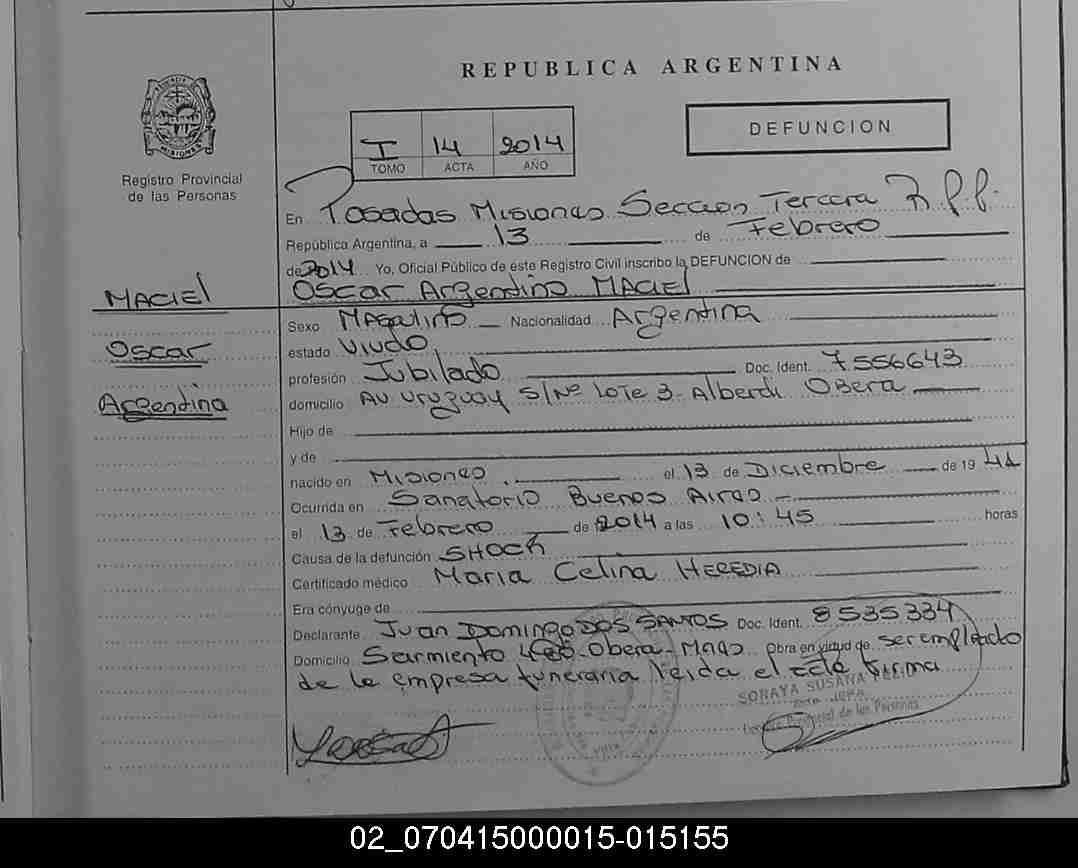 REPUBLICA ARGENTINA
DEFUNCION
I 14 2014
TOMO ACTA AÑO
MISIONES
Registro Provincial
de las Personas
MACIEL
Oscar
Argentino
En Posadas Misiones Seccion Tercera R.P.P.
República Argentina, a 13 de Febrero
de 2014 Yo, Oficial Público de este Registro Civil inscribo la DEFUNCION de
Oscar Argentino MACIEL
Sexo Masculino Nacionalidad Argentina
estado Viudo
profesión Jubilado Doc. Ident. 7556643
domicilio AV Uruguay S/Nº Lote 3 - Alberdi Obera
Hijo de
y de
nacido en Misiones el 13 de Diciembre de 19 41
Ocurrida en Sanatorio Buenos Aires
el 13 de Febrero de 2014 a las 10:45 horas
Causa de la defunción SHOCK
Certificado médico Maria Celina HEREDIA
Era cónyuge de
Declarante Juan Domingo DOS SANTOS Doc. Ident. 8535334
Domicilio Sarmiento Obera - Mnes Obra en virtud de ser empleado
de la empresa funeraria leida el acta firma
SORAYA SUSANA
Registro Provincial de las Personas
02_070415000015-015155